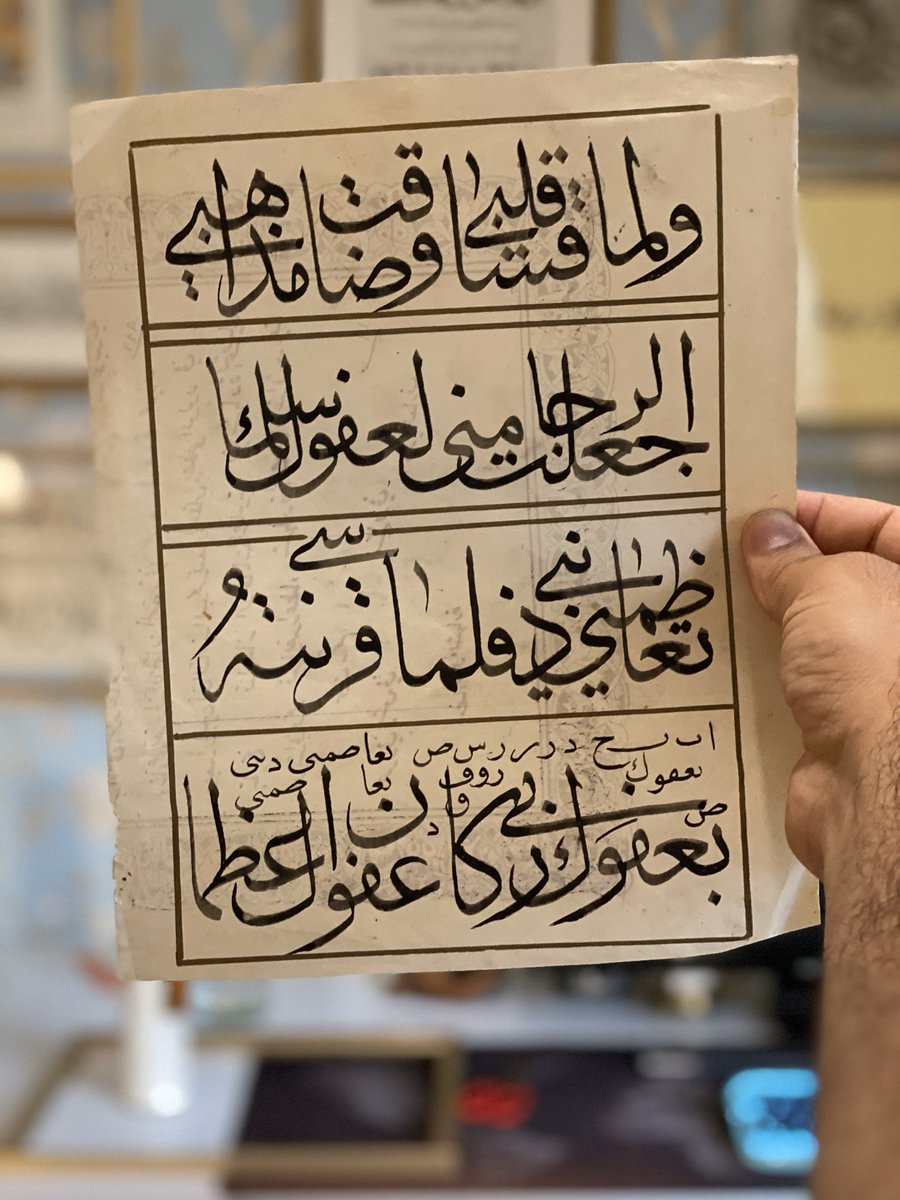 ولما قسا قلبي وضاقت مذاهبي
جعلت الرجا مني لعفوك سلما
تعاظمني ذنبي فلما قرنته
بعفوك ربي كان عفوك اعظما